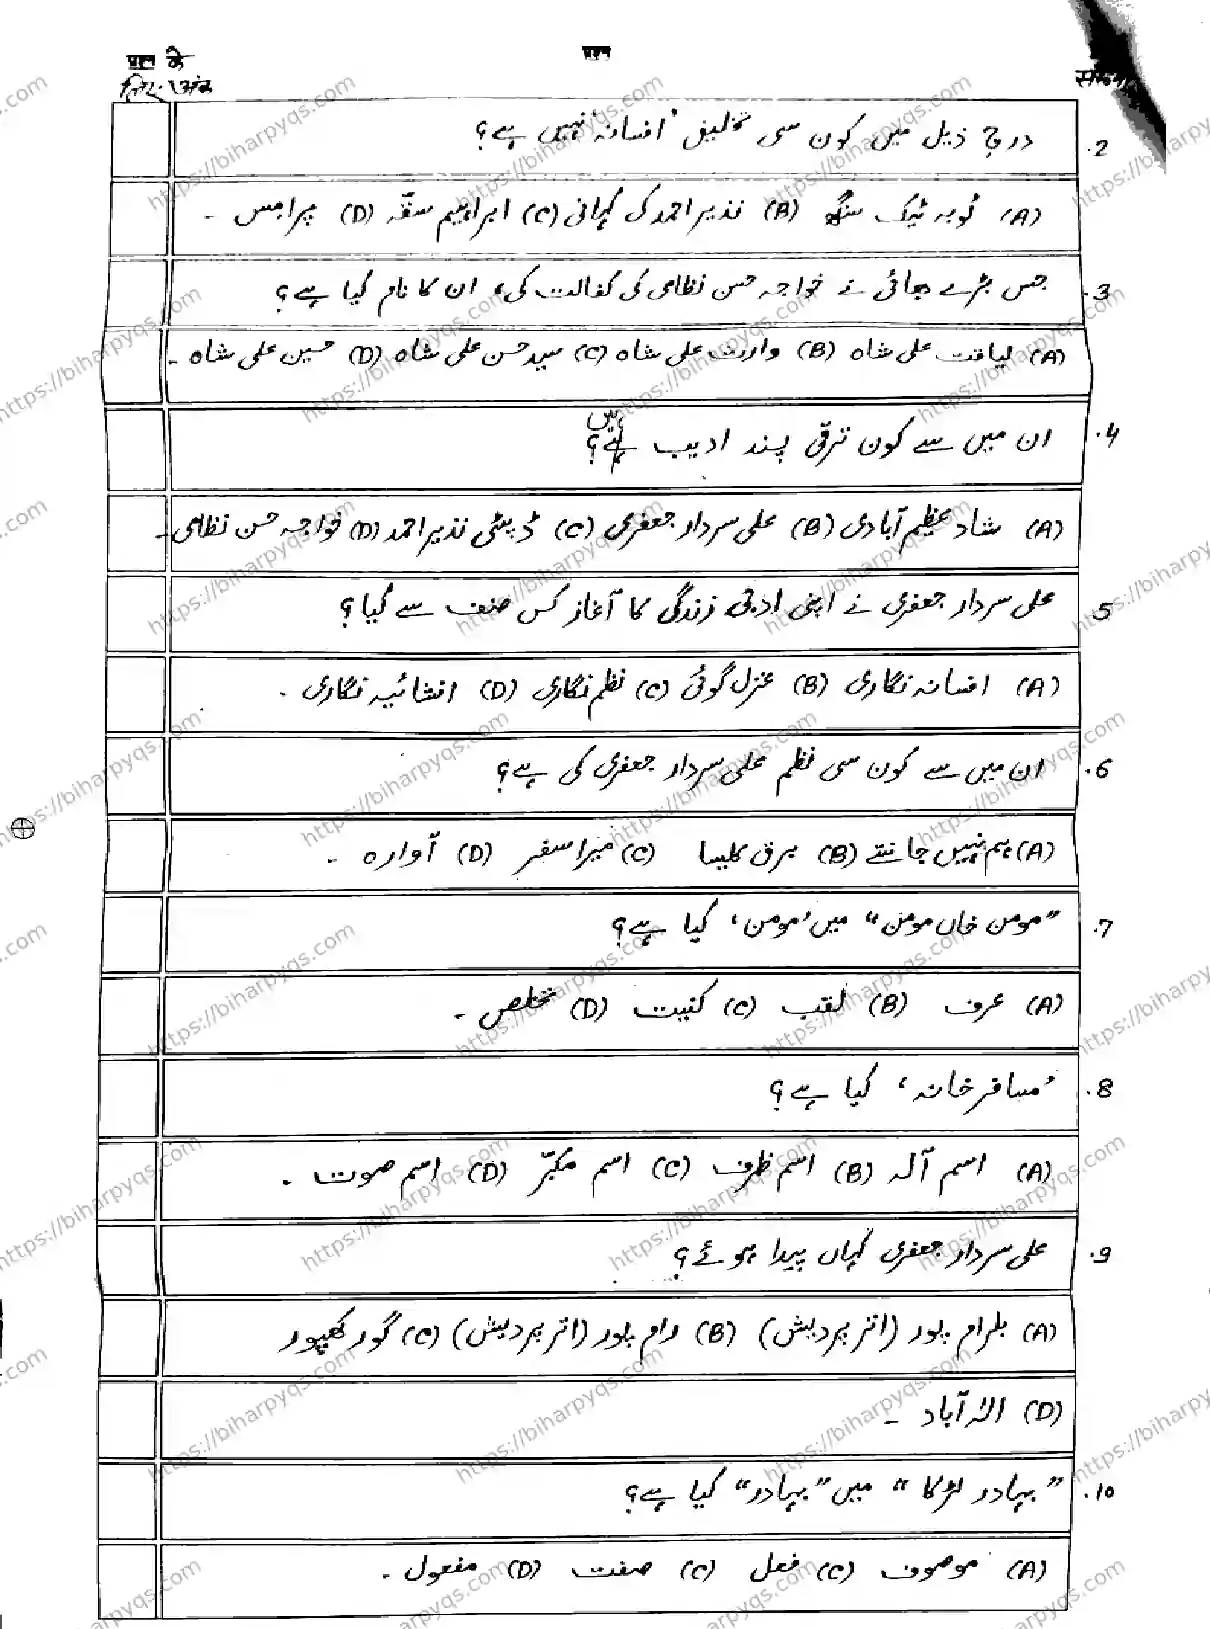 प्रश्न के
लिए अंक
प्रश्न
2. درج ذیل میں کون سی تخلیق 'افسانہ' نہیں ہے؟
(A) ٹوبہ ٹیک سنگھ (A) نذیر احمد کی کہانی (C) ابراہیم سقّہ (D) پرامس ۔
3. جس بڑے بھائی نے خواجہ حسن نظامی کی کفالت کی، ان کا نام کیا ہے؟
(A) لیاقت علی شاہ (B) وارث علی شاہ (C) سید حسن علی شاہ (D) حسین علی شاہ ۔
4. ان میں سے کون ترقی پسند ادیب ہیں؟
(A) شاد عظیم آبادی (B) علی سردار جعفری (C) ڈپٹی نذیر احمد (D) خواجہ حسن نظامی ۔
5 علی سردار جعفری نے اپنی ادبی زندگی کا آغاز کس صنف سے کیا؟
(A) افسانہ نگاری (B) غزل گوئی (C) نظم نگاری (D) انشائیہ نگاری ۔
6. ان میں سے کون سی نظم علی سردار جعفری کی ہے؟
(A) ہم نہیں جانتے (B) برق کلیسا (C) میرا سفر (D) آوارہ ۔
7. "مومن خاں مومن" میں 'مومن' کیا ہے؟
(A) عرف (B) لقب (C) کنیت (D) تخلص ۔
8. 'مسافر خانہ' کیا ہے؟
(A) اسم آلہ (B) اسم ظرف (C) اسم مکبّر (D) اسم صوت ۔
9. علی سردار جعفری کہاں پیدا ہوئے؟
(A) بلرام پور (اتر پردیش) (B) رام پور (اتر پردیش) (C) گورکھپور
(D) الہٰ آباد ۔
10. "بہادر لڑکا" میں "بہادر" کیا ہے؟
(A) موصوف (C) فعل (C) صفت (D) مفعول ۔
https://biharpyqs.com